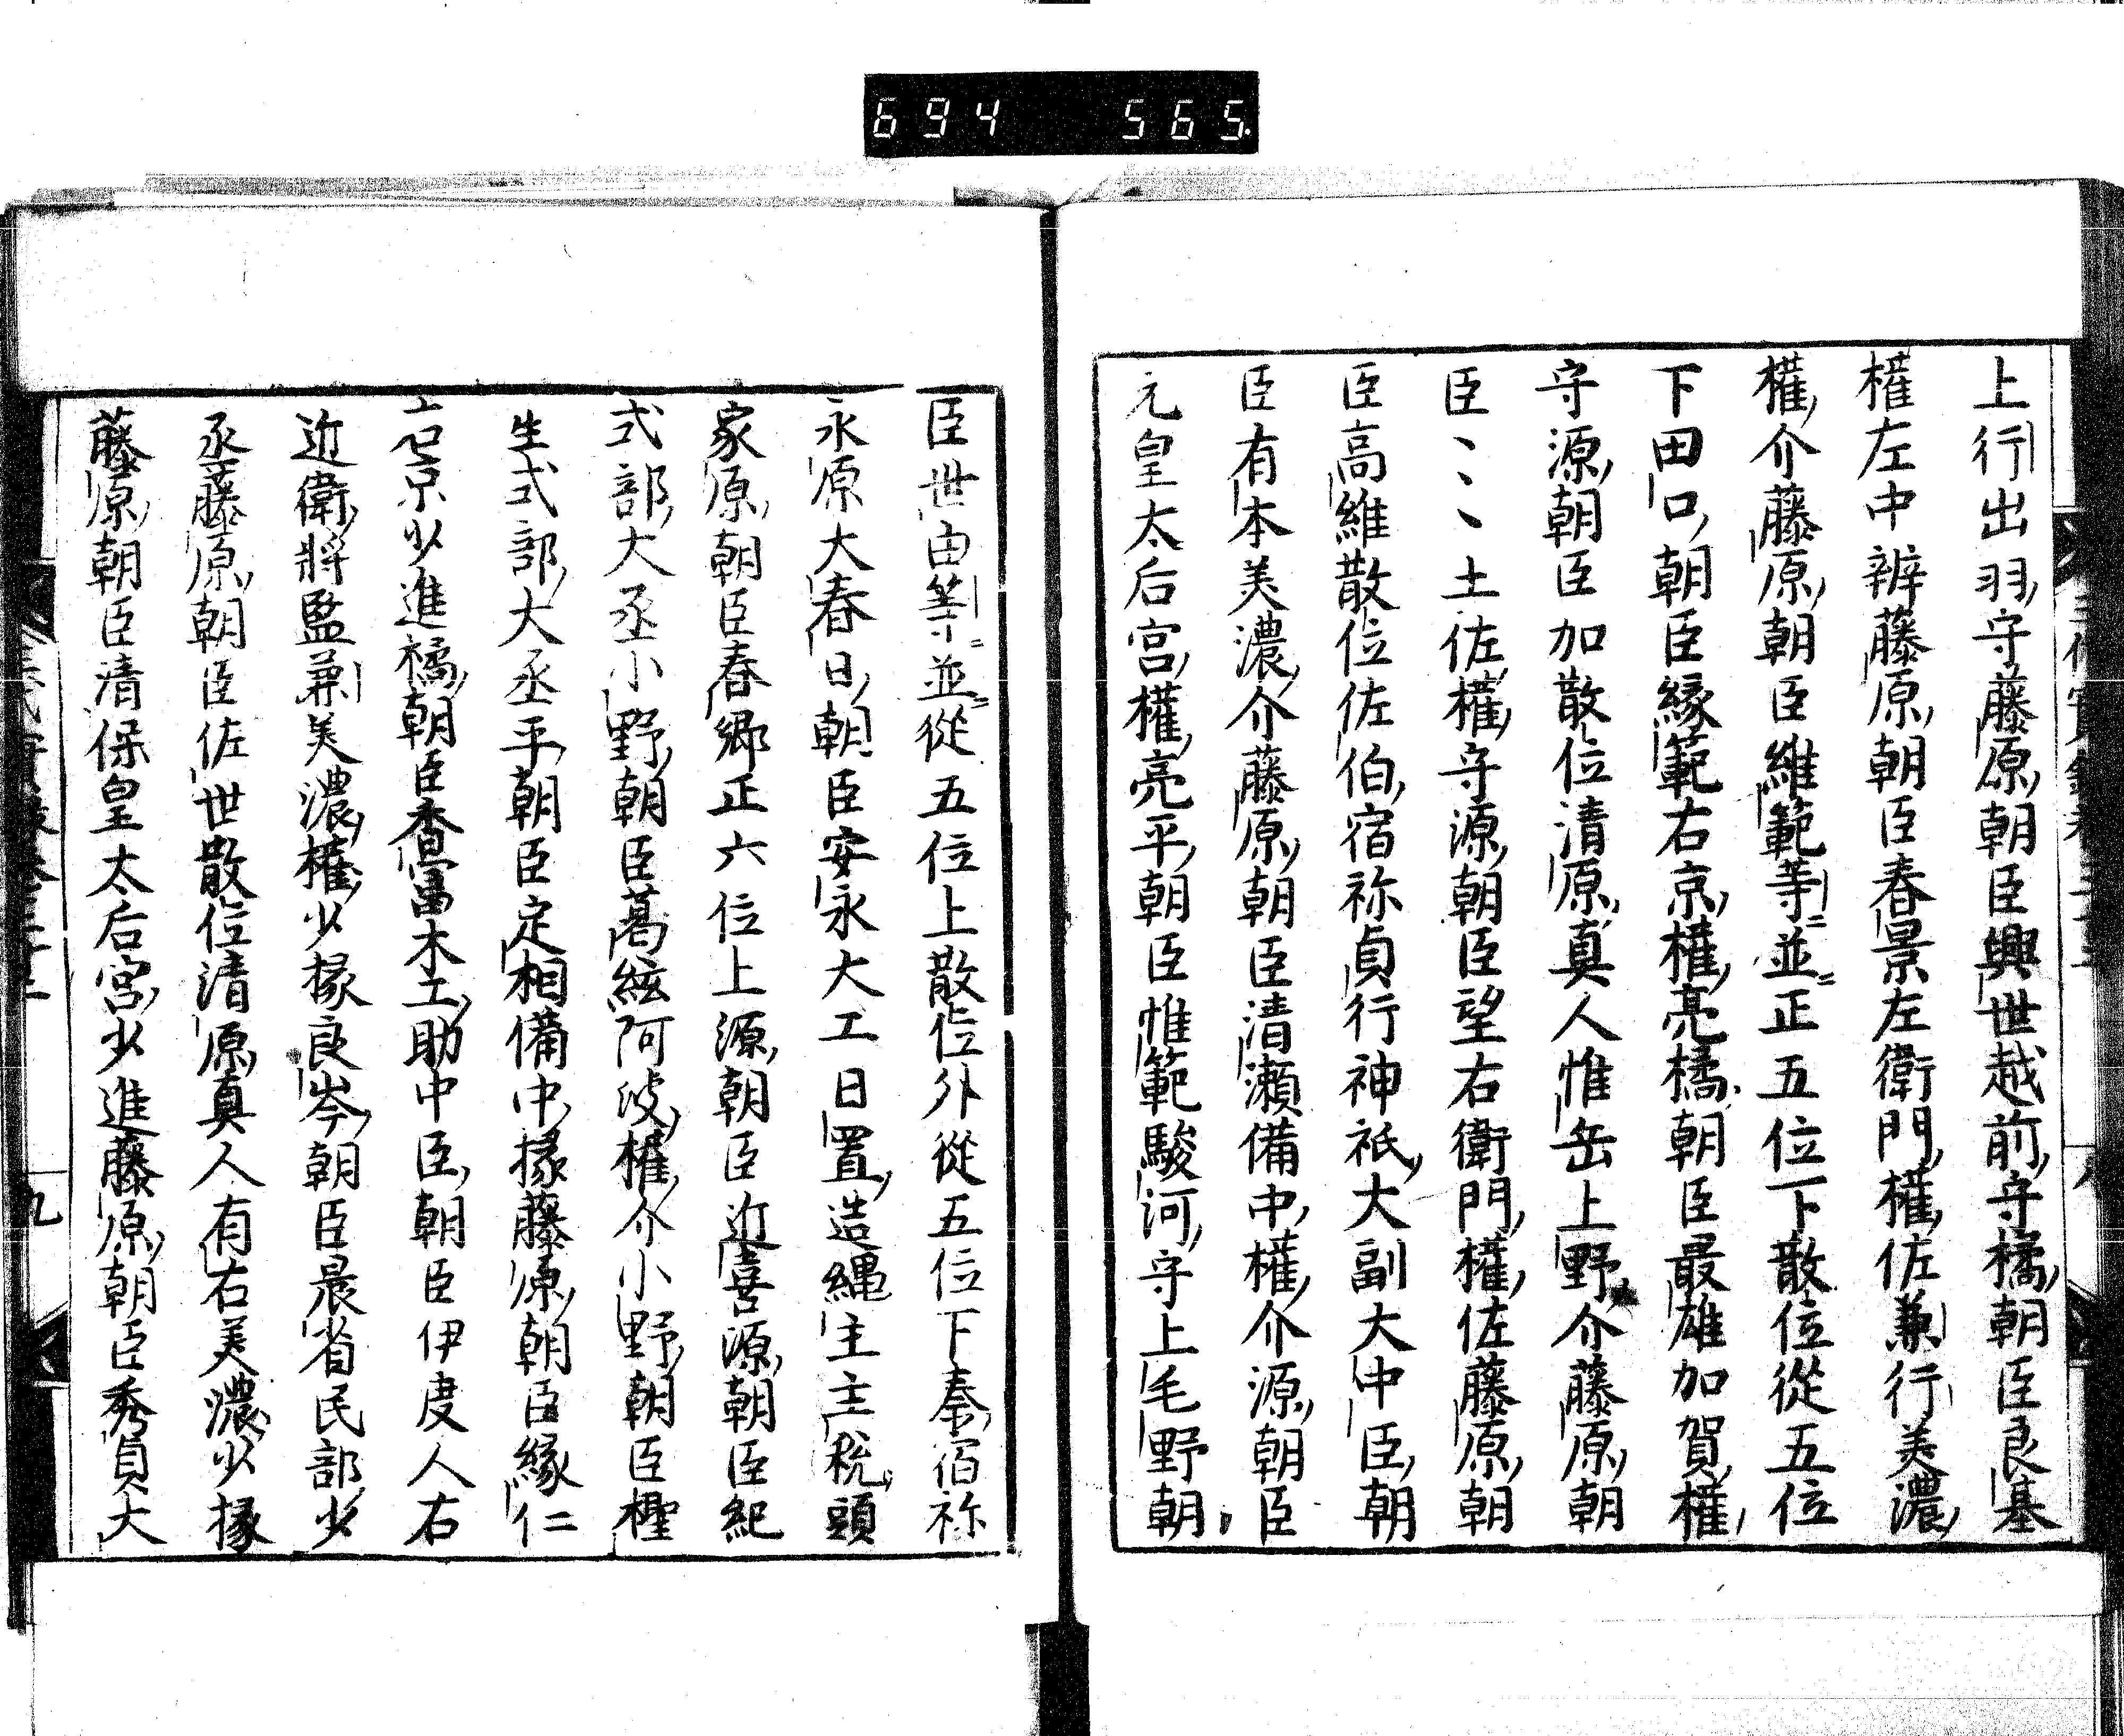 694 565.
上行出羽守藤原朝臣興世越前守橘朝臣良基
權左中辨藤原朝臣春景左衛門權佐兼行美濃
權介藤原朝臣維範等並正五位下散位從五位
下田口朝臣緣範右京權亮橘朝臣最雄加賀權
守源朝臣加散位清原真人惟岳上野介藤原朝
臣〻〻〻土佐權守源朝臣望右衛門權佐藤原朝
臣高維散位佐伯宿祢貞行神祇大副大中臣朝
臣有本美濃介藤原朝臣清瀬備中權介源朝臣
元皇太后宮權亮平朝臣惟範駿河守上毛野朝
臣世由等並從五位上散位外從五位下秦宿祢
永原大春日朝臣安永大工日置造縄主主税頭
家原朝臣春郷正六位上源朝臣近善源朝臣紀
式部大丞小野朝臣葛絃阿波權介小野朝臣檉
生式部大丞平朝臣定相備中掾藤原朝臣緣仁
右京少進橘朝臣香冨木工助中臣朝臣伊度人右
近衛將監兼美濃權少掾良岑朝臣晨省民部少
丞藤原朝臣佐世散位清原真人有右美濃少掾
藤原朝臣清保皇太后宮少進藤原朝臣秀貞大
九